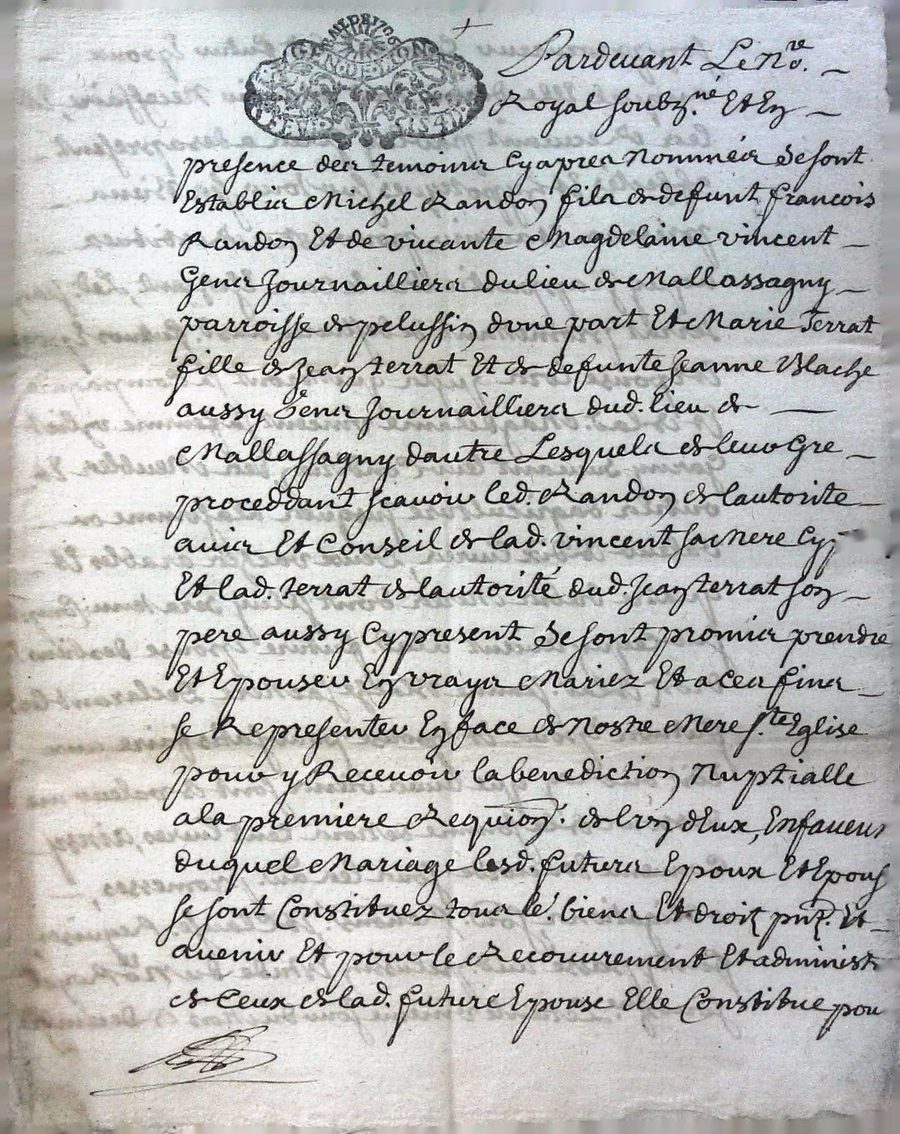 Pardevant Le Nre.
Royal soubz.né Et En
presence des temoins Cyapres Nommés Se sont
Establis Michel Randon fils de defunt francois
Randon Et de vivante Magdelaine vincent
Gens Journailliers du lieu de Mallassagny
parroisse de pelussin dune part Et Marie Terrat
fille de Jean terrat Et de defunte Jeanne Blache
aussy Gens Journailliers dud. lieu de
Mallassagny dautre Lesquels de leur Gre
proceddant scavoir led. Randon de lautorite
avis Et Conseil de lad. vincent sa Mere Cyp
Et lad. terrat de lautorité dud. Jean terrat son
pere aussy Cypresent Se sont promis prendre
Et Epouser En vrays Mariez Et a ces fins
se Representer En face de Nostre Mere ste Eglise
pour y Recevoir la benediction Nuptialle
a la premiere Requion. de lun dEux, En faveur
duquel Mariage lesd. futurs Epoux Et Epous
se sont Constituez tous le. biens Et droit pnt. Et
avenir Et pour le Recouvrement Et administ
de Ceux de lad. future Epouse Elle Constitue pou